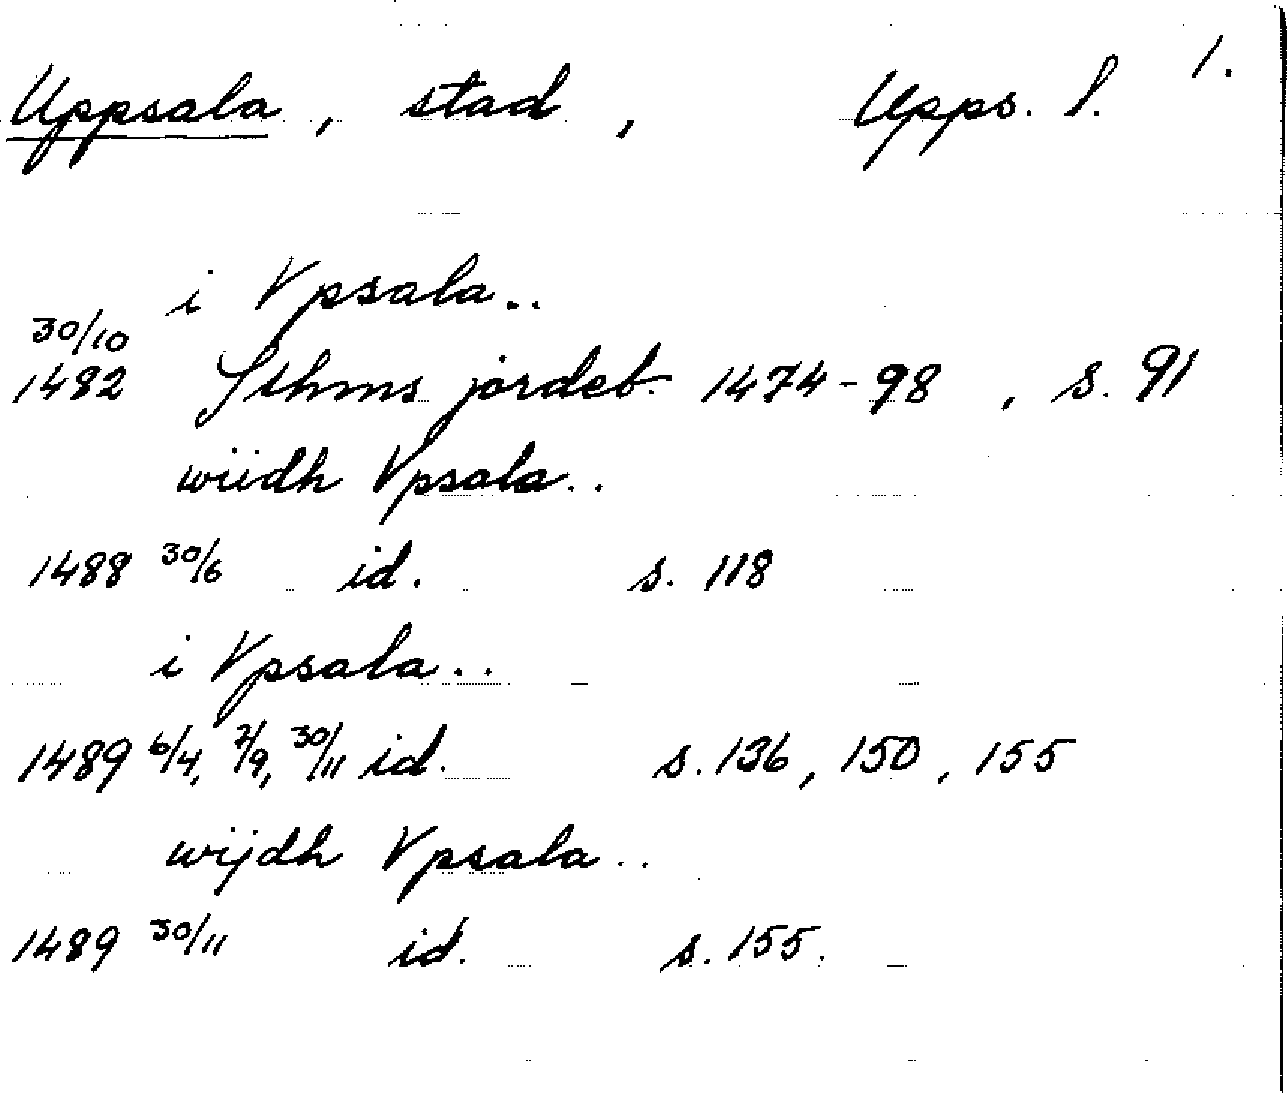 Uppsala, stad, Upps. l. 1.
i Vpsala..
30/10
1482 Sthms jordeb. 1474-98, s. 91
wiidh Vpsala..
1488 30/6 id. s. 118
i Vpsala..
1489 6/4, 2/9, 30/11 id. s. 136, 150, 155
wijdh Vpsala..
1489 30/11 id. s. 155.